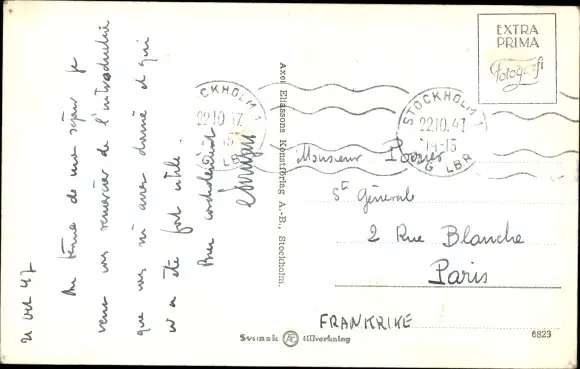 21 oct 47
Au terme de mon séjour je
veux vous remercier de l'introduction
que vous m'avez donné et qui
m'a été fort utile.
Bien cordialement
Axel Eliassons Konstförlag A.-B., Stockholm.
STOCKHOLM 1
22.10.47
LBR
STOCKHOLM 1
22.10.47
14-15
LBR
EXTRA
PRIMA
Fotografi
Monsieur
Sté Générale
2 Rue Blanche
Paris
FRANKRIKE
Svensk tillverkning
6823